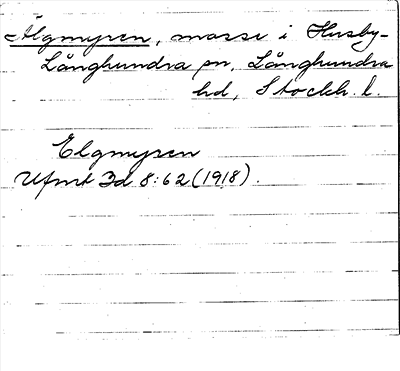 Älgmyren, mosse i Husby-
Långhundra sn, Långhundra
hd, Stockh. l.
Elgmyren
Ufmt Id 8:62 (1918).